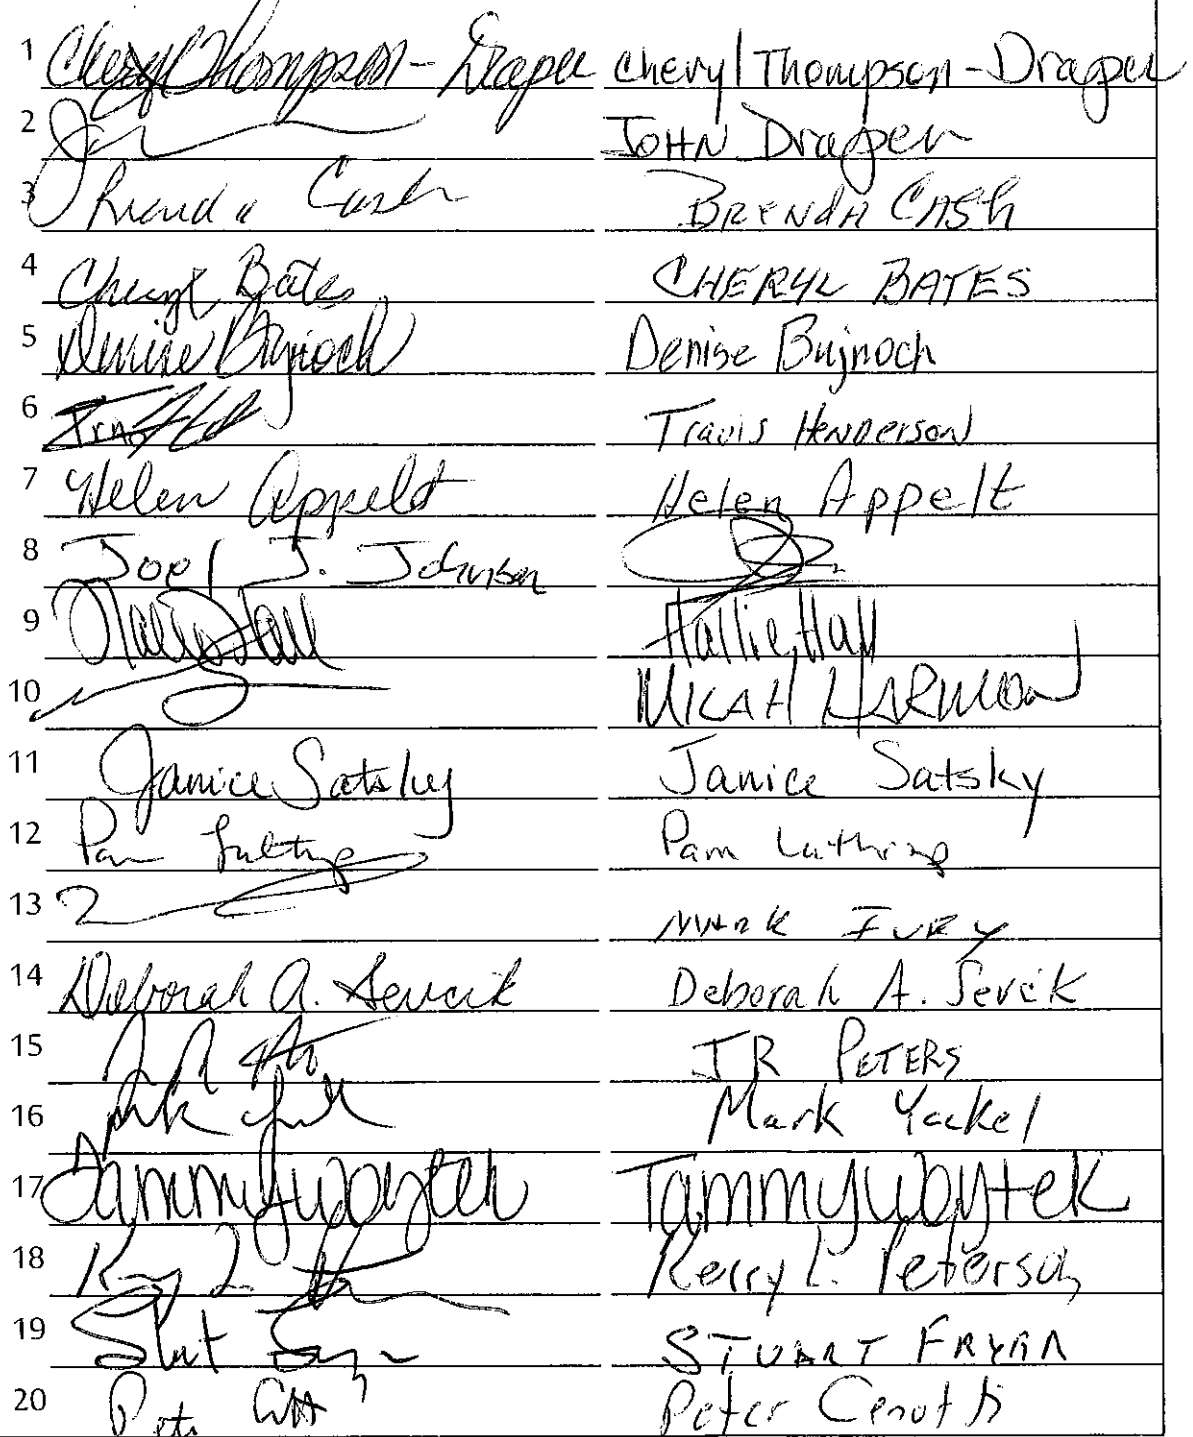 1 Cheryl Thompson-Draper Cheryl Thompson-Draper
2 JOHN Draper
3 Brenda Cash BRENDA CASh
4 Cheryl Bates CHERYL BATES
5 Denise Bujnoch Denise Bujnoch
6 Travis Henderson
7 Helen Appelt Helen Appelt
8 Joel J. Johnson
9 Hallie Hall Hallie Hall
10 MICAH HARMON
11 Janice Satsky Janice Satsky
12 Pam Pam
13 MARK
14 Deborah A. Sevcik Deborah A. Sevcik
15 JR PETERS
16 Mark Yackel
17 Tammy Woytek Tammy Woytek
18 Kerry L. Peterson
19 STUART
20 Peter